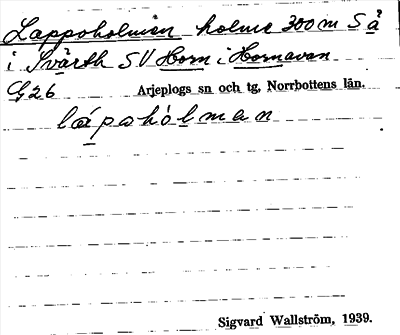 Lappoholmen holme 300 m S å
i Svärth SV Horn i Hornavan
G26 Arjeplogs sn och tg, Norrbottens län.
lápohòlman
Sigvard Wallström, 1939.